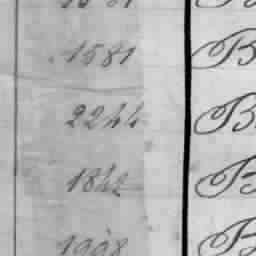 1581 B
2244 B
1842 B
1998 B